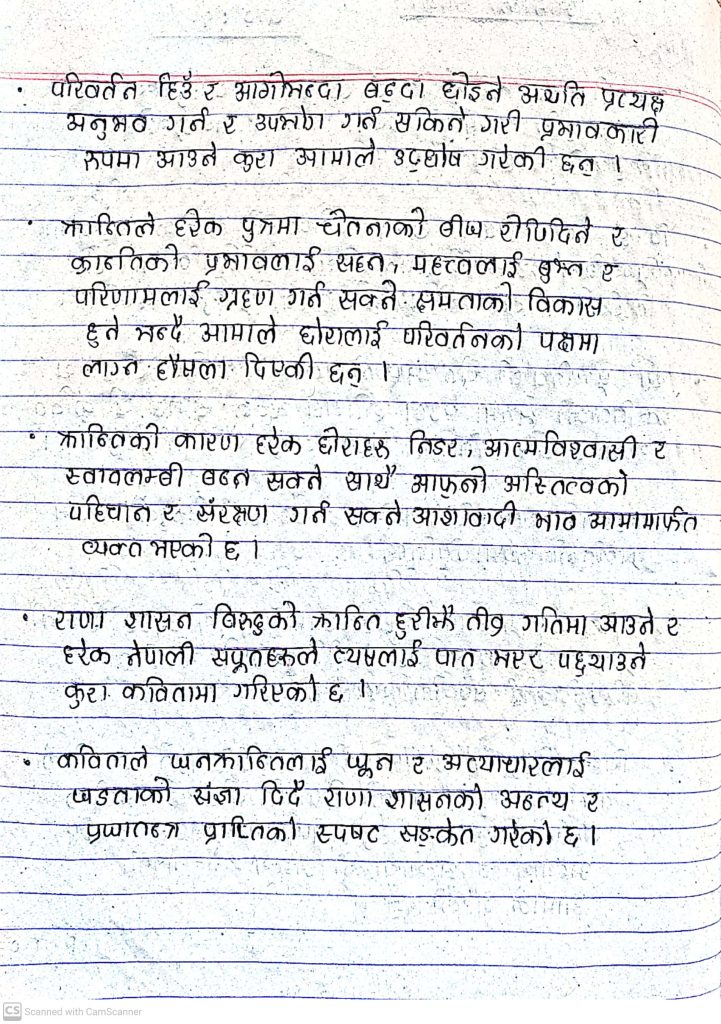 • परिवर्तन हिउँ र आगोभन्दा बढ्दा छोइने अर्थात प्रत्यक्ष
अनुभव गर्न र उपभोग गर्न सकिने गरी प्रभावकारी
रूपमा आउने कुरा आमाले उद्घोष गरेकी छन् ।
• क्रान्तिले हरेक पुत्रमा चेतनाको बीज रोपिदिने र
क्रान्तिको प्रभावलाई सहन, महत्त्वलाई बुझ्न र
परिणामलाई ग्रहण गर्न सक्ने क्षमताको विकास
हुने भन्दै आमाले छोरालाई परिवर्तनको पक्षमा
लाग्न हौसला दिएकी छन् ।
• क्रान्तिको कारण हरेक छोराहरू निडर, आत्मविश्वासी र
स्वावलम्बी बन्न सक्ने साथै आफ्नो अस्तित्वको
पहिचान र संरक्षण गर्न सक्ने आशावादी भाव आमामार्फत
व्यक्त भएको छ ।
• राणा शासन विरुद्धको क्रान्ति हुरीझैं तीव्र गतिमा आउने र
हरेक नेपाली सपूतहरूले त्यसलाई पात भएर पछ्याउने
कुरा कवितामा गरिएको छ ।
• कविताले जनक्रान्तिलाई जून र अत्याचारलाई
जडताको संज्ञा दिदै राणा शासनको अन्त्य र
प्रजातन्त्र प्राप्तिको स्पष्ट सङ्केत गरेको छ ।
CS Scanned with CamScanner